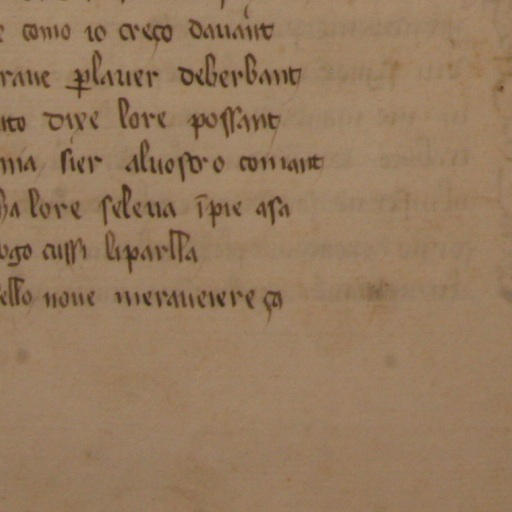 e como io creço davãnt
rave ꝑ laver deberbant
ito dixe lore possant
ma sier al vostro comant
ha lore se leva ĩ pie asa
ogo cussi li parlla
ello nove meraveiereça